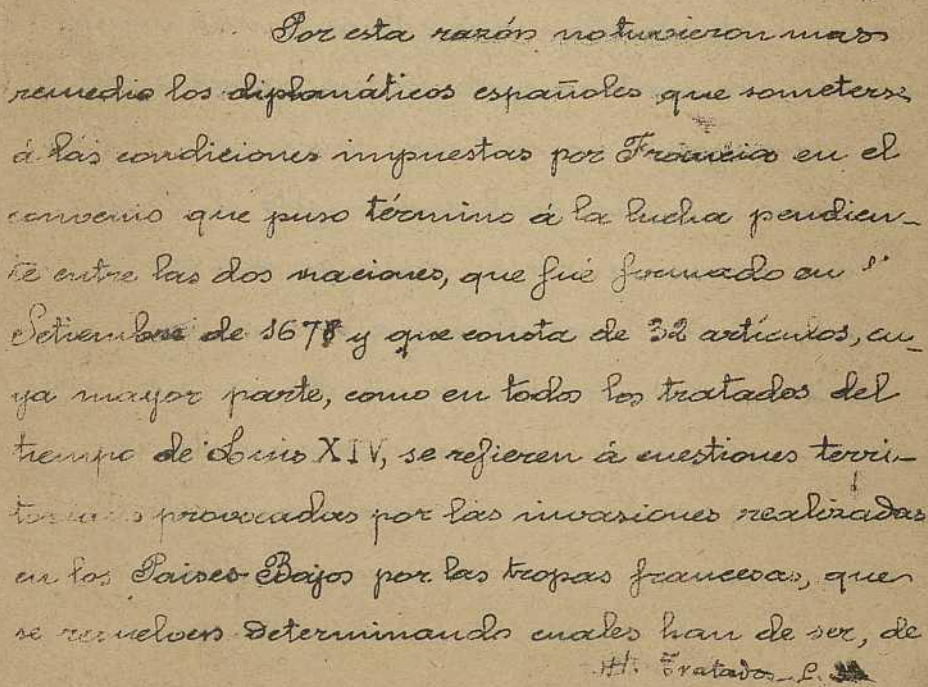 Por esta razón no tuvieron mas
remedio los diplomáticos españoles que someterse
á las condiciones impuestas por Francia en el
convenio que puso término á la lucha pendien-
te entre las dos naciones, que fué firmado en
Setiembre de 1678 y que consta de 32 artículos, cu-
ya mayor parte, como en todos los tratados del
tiempo de Luis XIV, se refieren á cuestiones terri-
toriales provocadas por las invasiones realizadas
en los Paises Bajos por las tropas francesas, que
se resuelven determinando cuales han de ser, de
H. Tratados